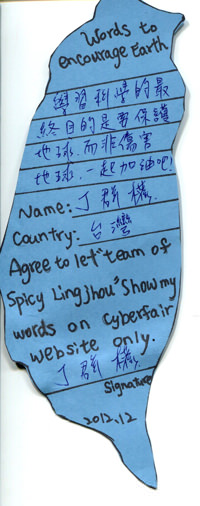 Words to
encourage Earth
學習科學的最
終目的是要保護
地球,而非傷害
地球,一起加油吧!
Name: 丁群機
Country: 台灣
Agree to let "team of
Spicy Lingjhou" Show my
words on Cyberfair
website only.
丁群機
Signature
2012.12